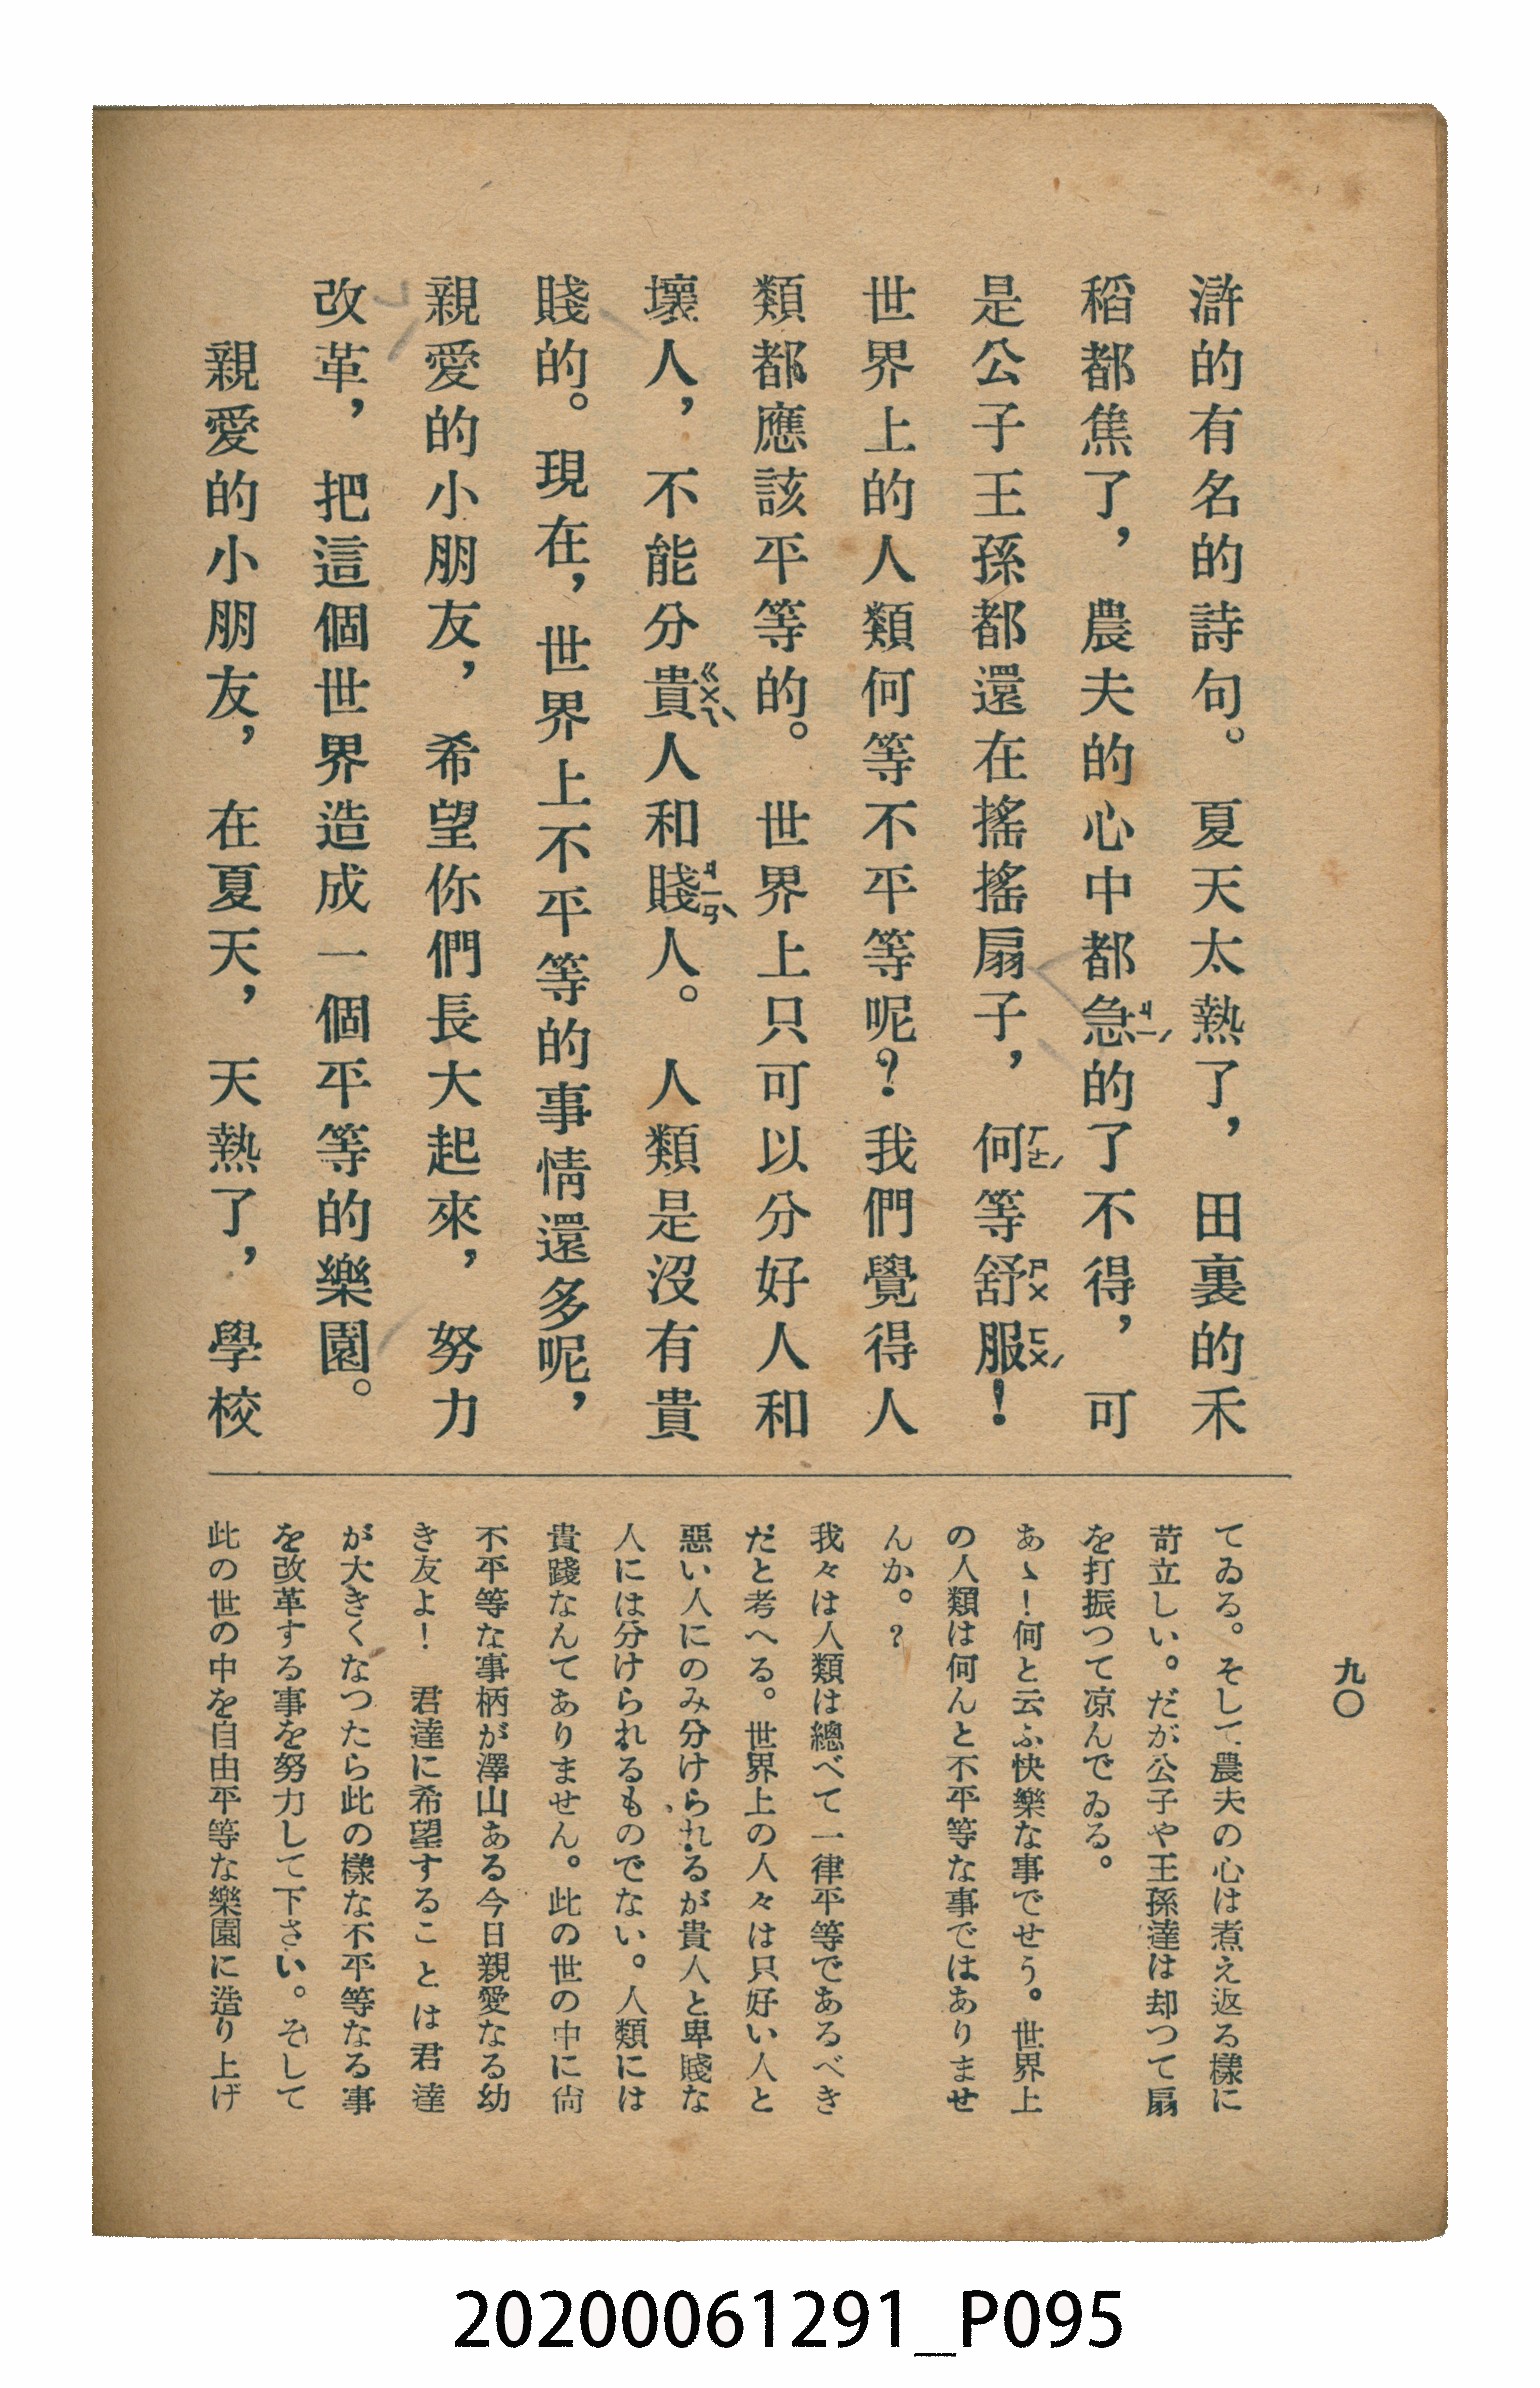 滸的有名的詩句。夏天太熱了，田裏的禾
稻都焦了，農夫的心中都急ㄐㄧˊ的了不得，可
是公子王孫都還在搖搖扇子，何ㄏㄜˊ等舒ㄕㄨ服ㄈㄨˊ！
世界上的人類何等不平等呢？我們覺得人
類都應該平等的。世界上只可以分好人和
壞人，不能分貴ㄍㄨㄟˋ人和賤ㄐㄧㄢˋ人。人類是沒有貴
賤的。現在，世界上不平等的事情還多呢，
親愛的小朋友，希望你們長大起來，努力
改革，把這個世界造成一個平等的樂園。
親愛的小朋友，在夏天，天熱了，學校
てゐる。そして農夫の心は煮え返る樣に
苛立しい。だが公子や王孫達は却つて扇
を打振つて凉んでゐる。
あゝ！何と云ふ快樂な事でせう。世界上
の人類は何んと不平等な事ではありませ
んか。？
我々は人類は總べて一律平等であるべき
だと考へる。世界上の人々は只好い人と
惡い人にのみ分けられるが貴人と卑賤な
人には分けられるものでない。人類には
貴踐なんてありません。此の世の中に尙
不平等な事柄が澤山ある今日親愛なる幼
き友よ！　君達に希望することは君達
が大きくなつたら此の樣な不平等なる事
を改革する事を努力して下さい。そして
此の世の中を自由平等な樂園に造り上げ
九〇
20200061291_P095